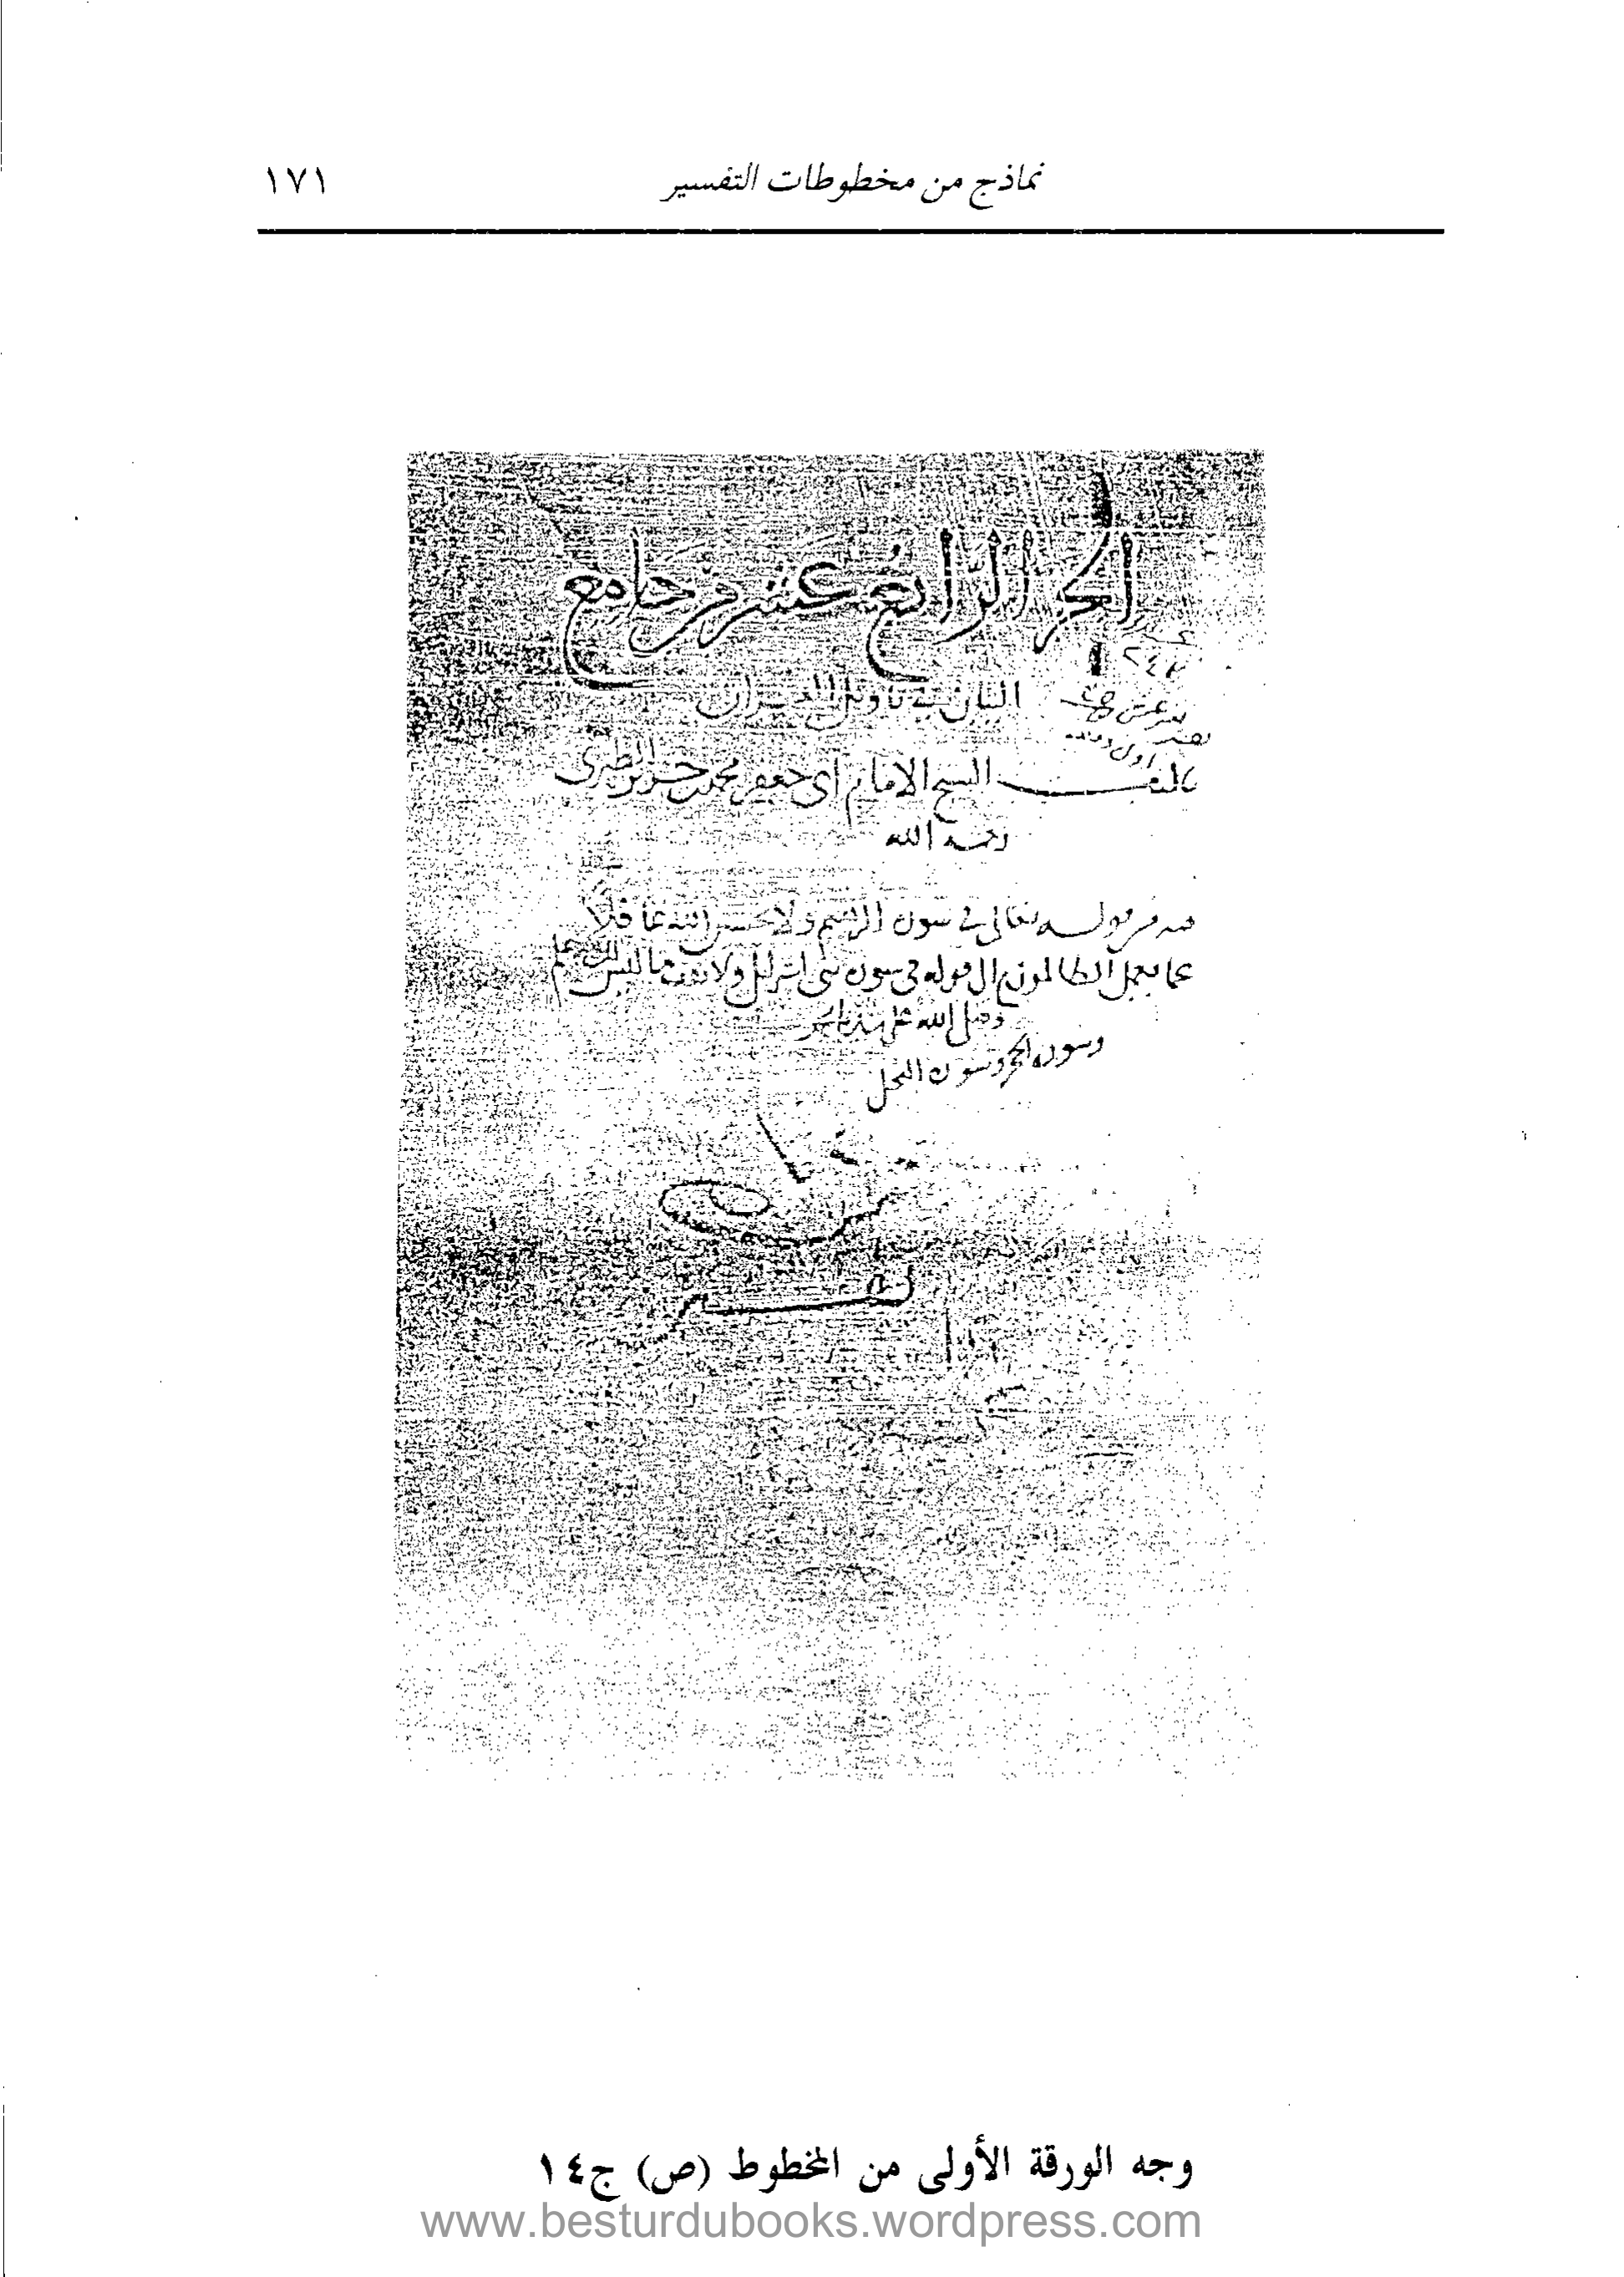 نماذج من مخطوطات التفسير ١٧١
الجزء الرابع عشر من جامع
البيان في تاويل القران
تاليف الشيخ الامام ابي جعفر محمد بن جرير الطبري
رحمه الله
فيه من قوله تعالى في سورة ابرهيم ولا تحسبن الله غافلا
عما يعمل الظالمون الى قوله في سورة بني اسرايل ولا تقف ما ليس لك به علم
وسورة الحجر وسورة النحل
وجه الورقة الأولى من المخطوط (ص) ج١٤
www.besturdubooks.wordpress.com